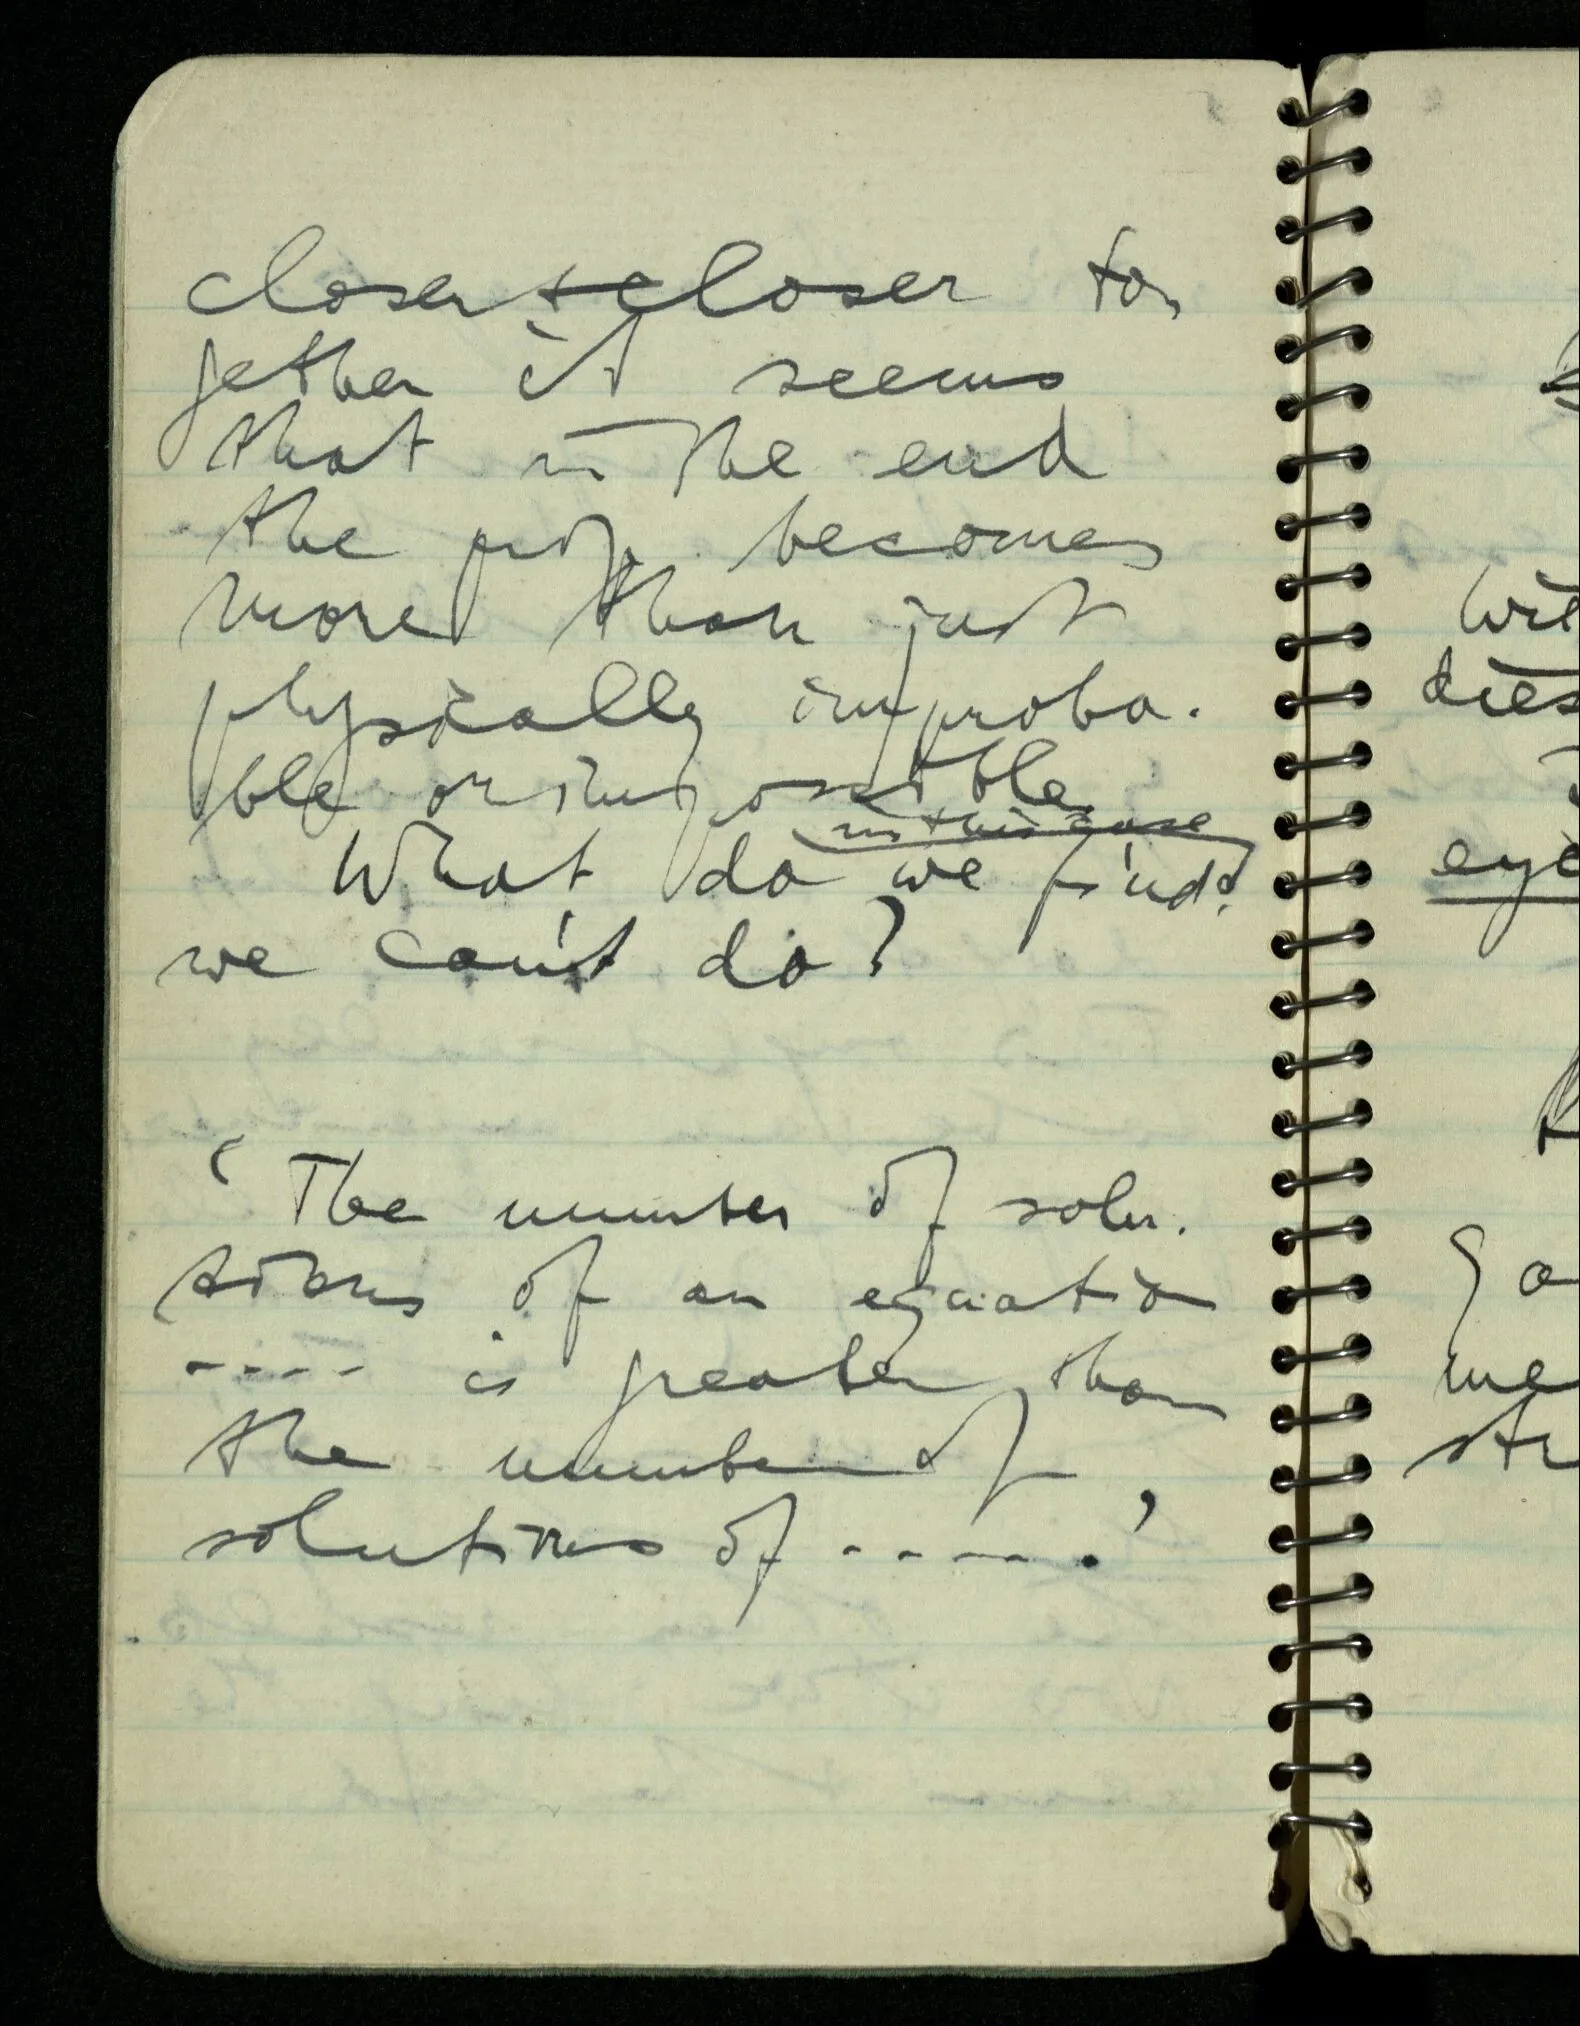 closer + closer to-
gether it seems
that in the end
the prop. becomes
more than just
physically improba-
ble or impossible.
in this case
What do we find?
we can't do?
‘The number of solu-
tions of an equation
---- is greater than
the number of
solutions of -----.’
wit
dies
eye
me
str